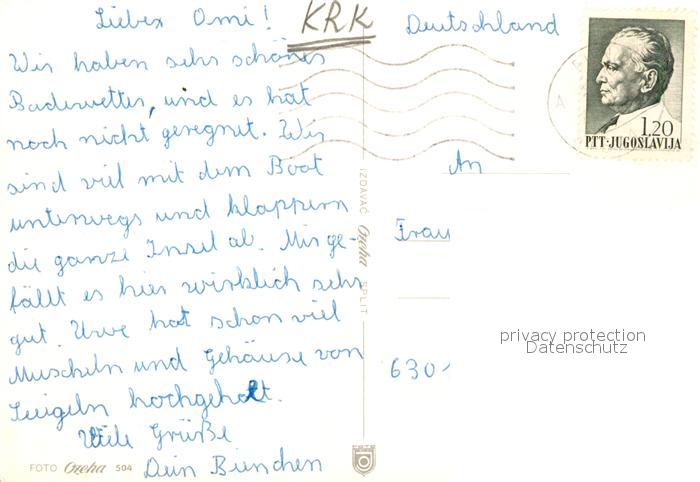 Lieber Omi!
KRK
Wir haben sehr schönes
Badewetter, und es hat
noch nicht geregnet. Wir
sind viel mit dem Boot
unterwegs und klappern
die ganze Insel ab. Mir ge-
fällt es hier wirklich sehr
gut. Uwe hat schon viel
Muscheln und Gehäuse von
Seeigeln hochgeholt.
Viele Grüße
Dein Bienchen
FOTO Ozeha 504
IZDAVAČ Ozeha SPLIT
Deutschland
1.20
PTT-JUGOSLAVIJA
An
Frau
630
privacy protection
Datenschutz